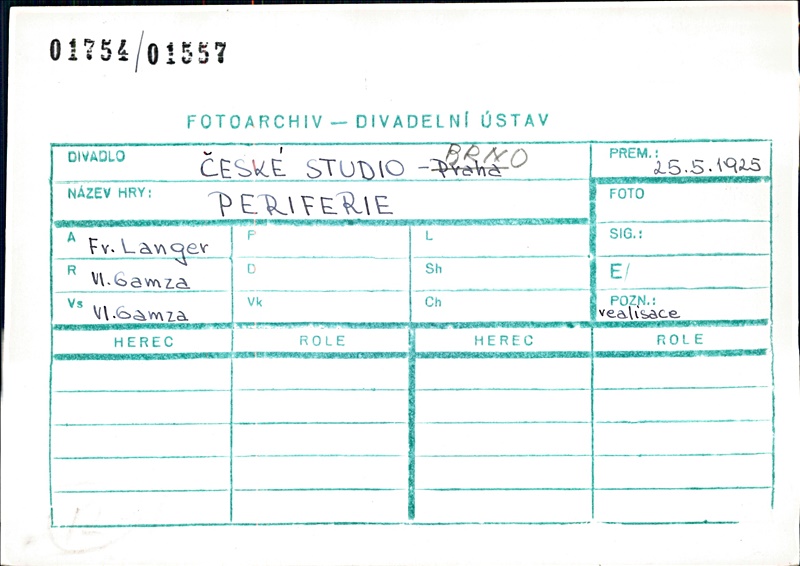 01754/01557
FOTOARCHIV — DIVADELNÍ ÚSTAV
DIVADLO ČESKÉ STUDIO - Praha BRNO
PREM.: 25.5.1925
NÁZEV HRY: PERIFERIE
FOTO
A Fr. Langer
P
L
SIG.:
R Vl. Gamza
D
Sh
E/
Vs Vl. Gamza
Vk
Ch
POZN.: realisace
HEREC ROLE HEREC ROLE